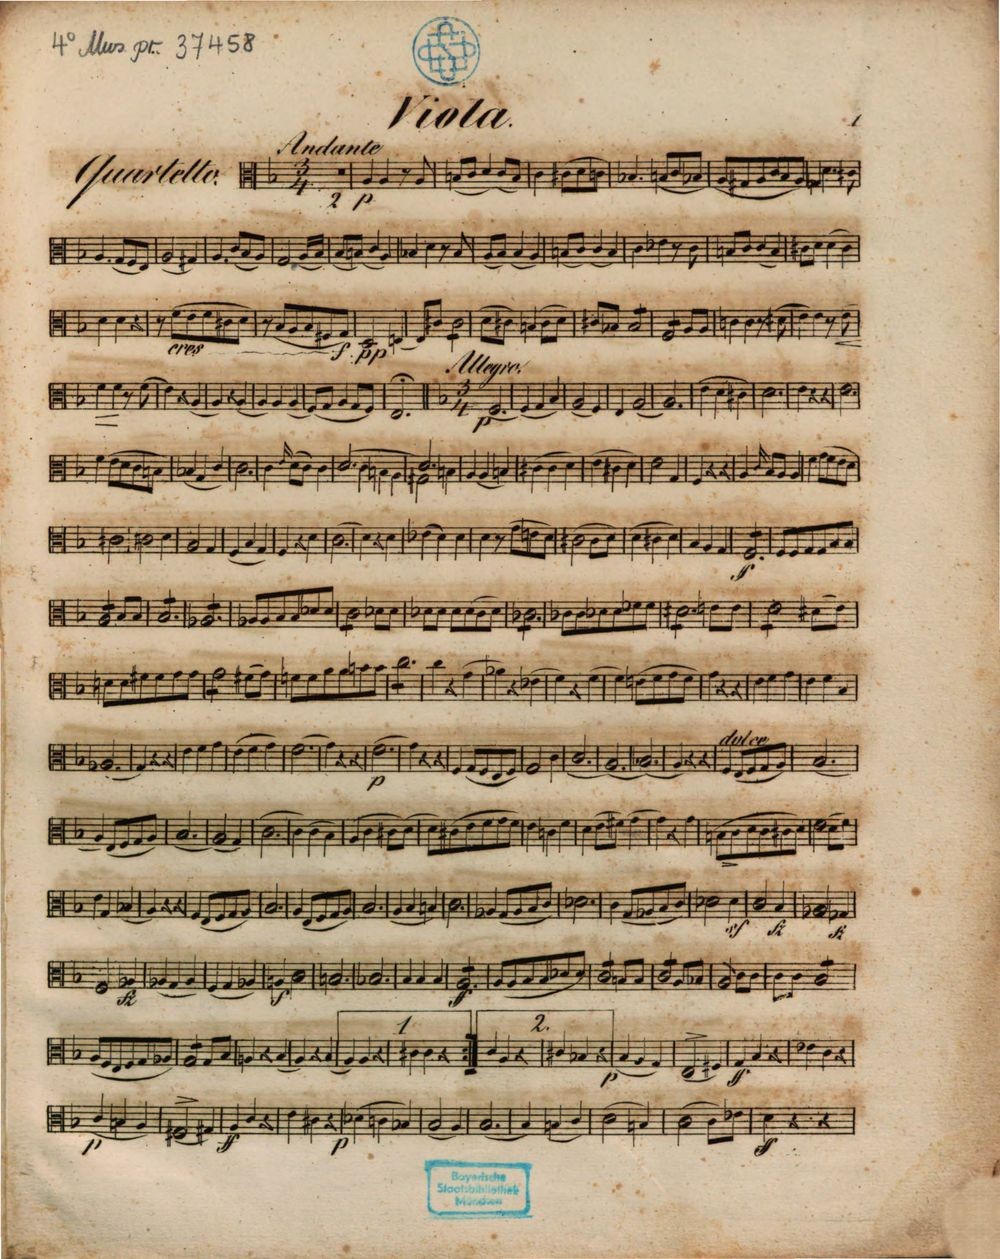 4° Mus. pr. 37458
Viola.
1
Quartetto.
Andante
3
4
2 p
cres f pp
Allegro.
3
4
p
ff
p
dolce
sf fz fz
fz f ff
1 2.
p ff
p ff p f
Bayerische
Staatsbibliothek
München